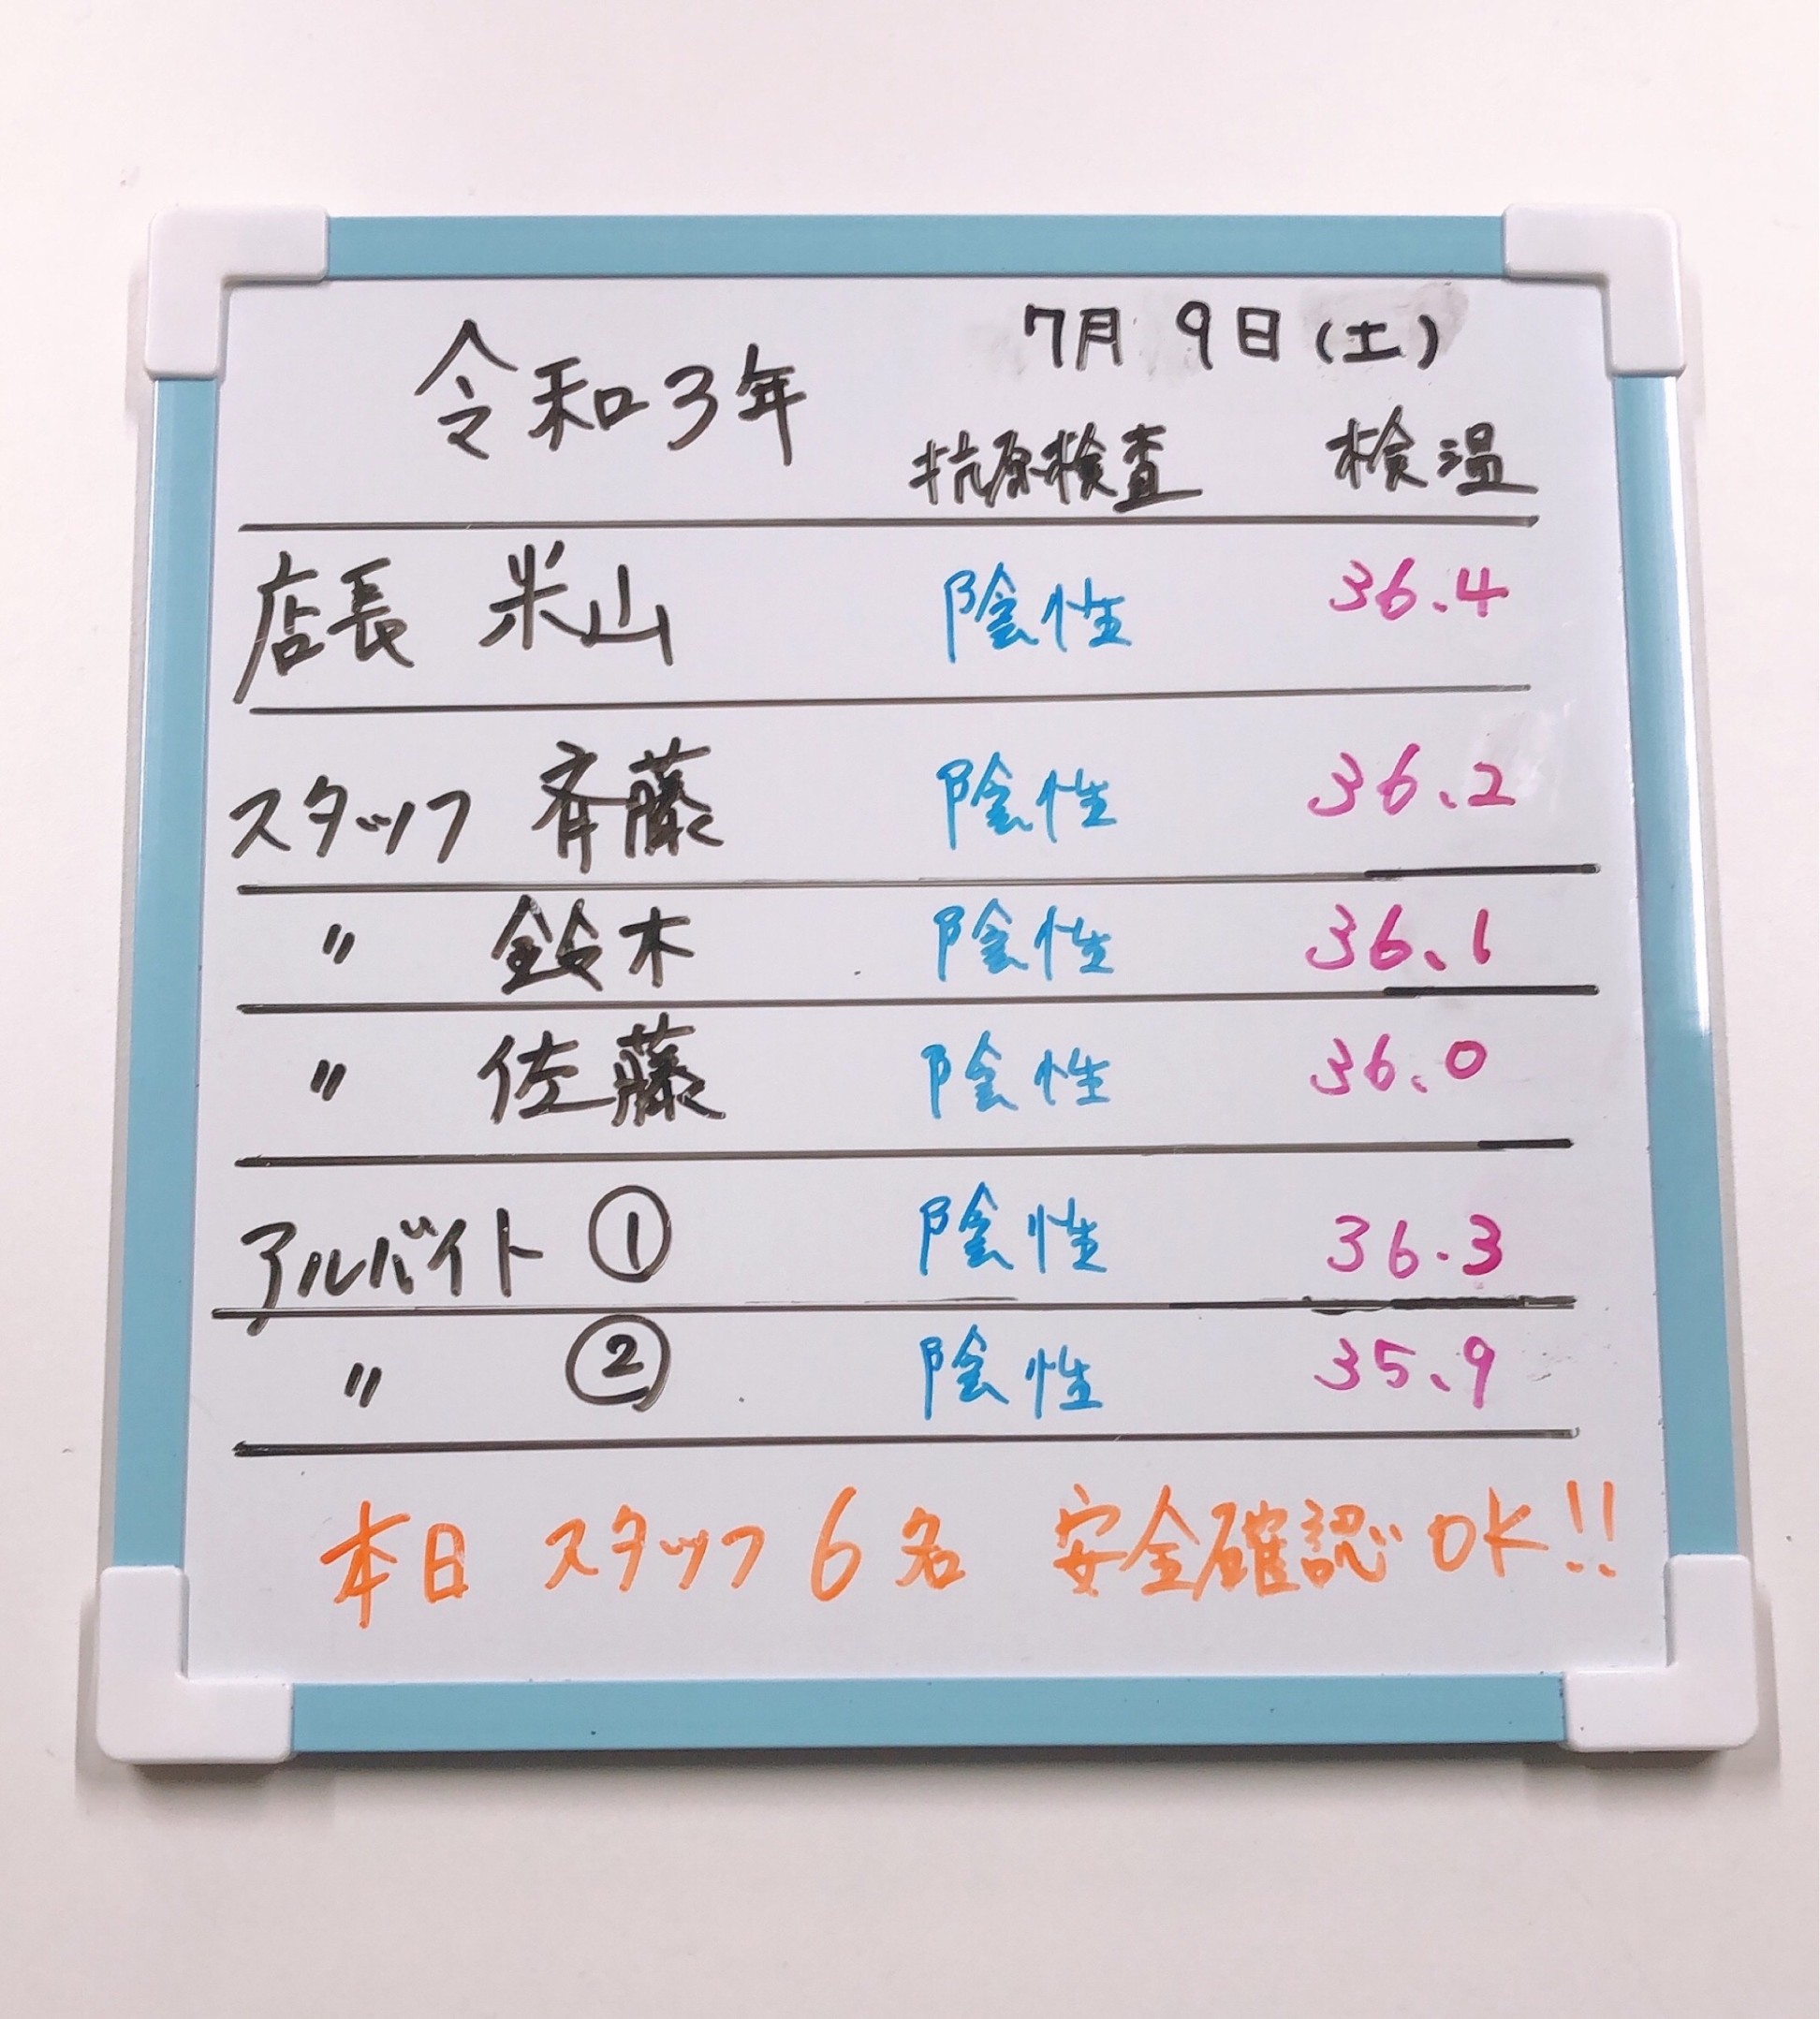 令和3年 7月9日(土)
抗原検査 検温
店長 米山 陰性 36.4
スタッフ 斉藤 陰性 36.2
〃 鈴木 陰性 36.1
〃 佐藤 陰性 36.0
アルバイト ① 陰性 36.3
〃 ② 陰性 35.9
本日 スタッフ 6名 安全確認OK!!